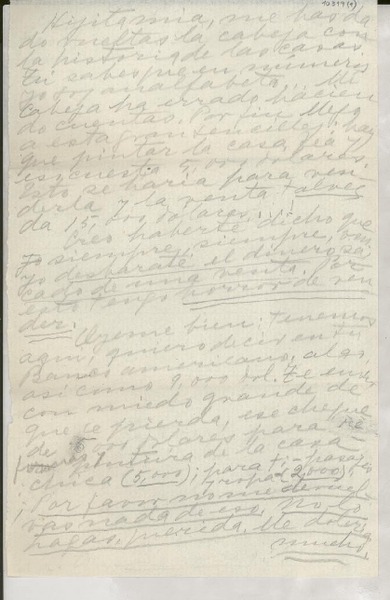 10377(1)
Hijita mía, me has da
do vueltas la cabeza con
la historia de las casas.
Tú sabes que en números
yo soy analfabeta. Mi
cabeza ha errado hacien
do cuentas. Por fin llego
a esta gran sencillez: hay
que pintar la casa fea y
eso cuesta 5,000 dolares.
Esto se haría para ven
derla y la venta talvez
da 15,000 dolares...!
Creo haberte dicho que
yo siempre, siempre, siempre
desbaraté el dinero sa
cado de una venta. Por
esto tengo horror de ven
der.
Oyeme bien: tenemos
aquí, quiero decir en tu
Banco americano, algo
así como 9,000 dol. Te envío
con miedo grande de
que se pierda, ese cheque
de 5,000 dolares para
pintura de la casa
chica (5,000); para ti: pasajes
ropa (2,000)
¡Por favor no me devuel
vas nada de eso. No lo
hagas, querida. Me dolería
mucho.